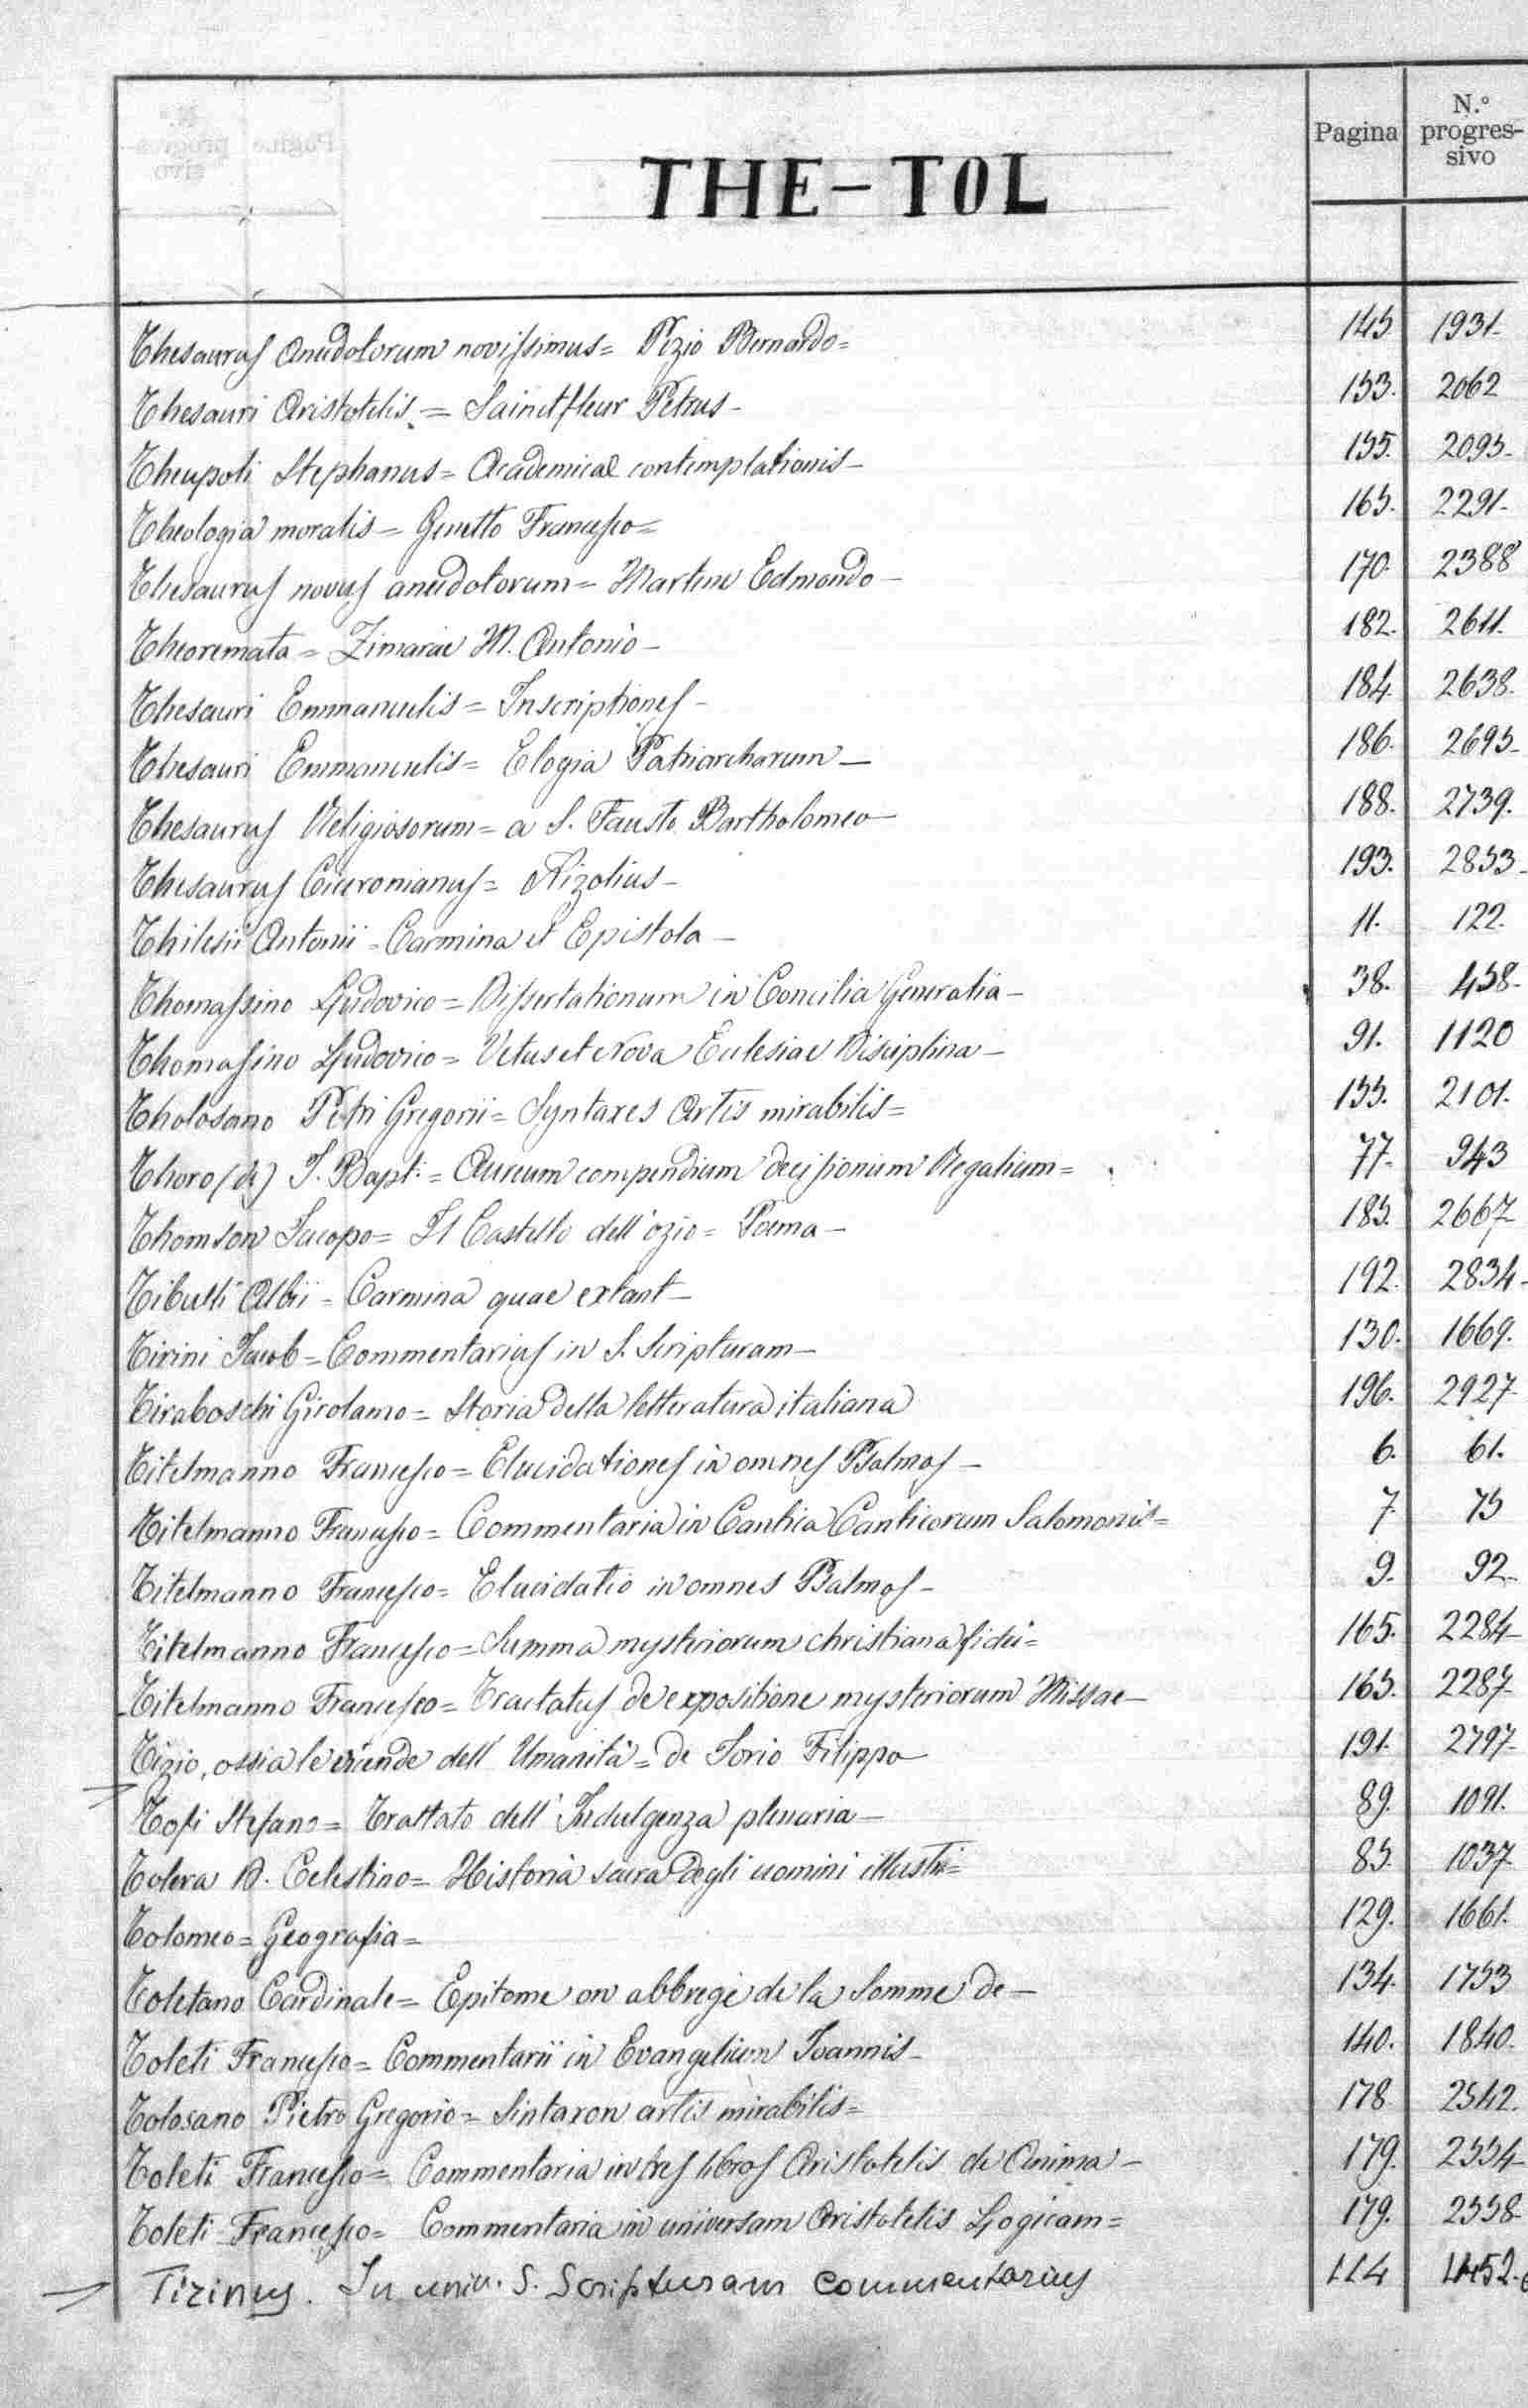 Pagina N.° progres-sivo
THE-TOL
Thesaurus Anecdotorum novissimus= Pezio Bernardo= 145 1931-
Thesauri Aristotelis = Sainctfleur Petrus- 153. 2062
Theupoli Stephanus= Academicae contemplationis- 155. 2095-
Theologia moralis= Genetto Francesco= 165. 2291-
Thesaurus novus anecdotorum= Martene Edmondo- 170- 2388
Theoremata= Zimarae M. Antonio- 182. 2611.
Thesauri Emmanuelis= Inscriptiones- 184 2638.
Thesauri Emmanuelis= Elogia Patriarcharum- 186- 2695-
Thesaurus Religiosorum= a S. Fausto Bartholomeo- 188. 2739.
Thesaurus Ciceronianus= Nizolius- 193. 2853-
Thilesii Antonii= Carmina et Epistola- 11. 122.
Thomassino Ludovico= Dissertationum in Concilia Generalia- 38. 458-
Thomasino Ludovico= Vetus et Nova Eclesiae Disciplina- 91. 1120
Tholosano Petri Gregorii= Syntaxes Artis mirabilis= 155. 2101.
Thoro (de) J. Bapt:= Aureum compendium decisionum Regalium= 77- 943
Thomson Jacopo= Il Castello dell'ozio= Poema- 185. 2667
Tibulli Albii= Carmina quae extant- 192 2834-
Tirini Jacob= Commentarius in S. Scripturam- 130. 1669.
Tiraboschi Girolamo= Storia della letteratura italiana 196. 2927
Titelmanno Francesco= Elucidationes in omnes Psalmos- 6. 61.
Titelmanno Francesco= Commentaria in Cantica Canticorum Salomonis= 7. 75
Titelmanno Francesco= Elucidatio in omnes Psalmos- 9. 92
Titelmanno Francesco= Summa mysteriorum christiana fidei= 165. 2284-
Titelmanno Francesco= Tractatus de expositione mysteriorum Missae- 165. 2287-
Tizio, ossia le vicende dell'Umanità= de Sorio Filippo 191. 2797-
Tofi Stefano= Trattato dell'Indulgenza plenaria- 89. 1091.
Tolera D. Celestino= Historia sacra degli uomini illustri= 85. 1037
Tolomeo= Geografia= 129. 1661.
Toletano Cardinale= Epitome on abbregé de la Somme de- 134. 1753
Toleti Francesco= Commentarii in Evangelium Ioannis- 140. 1840.
Tolosano Pietro Gregorio= Sintaxon artis mirabilis= 178 2542.
Toleti Francesco= Commentaria in tres libros Aristotelis de Anima- 179. 2554-
Toleti Francesco= Commentaria in universam Aristotelis Logicam= 179. 2558-
Tirinus. In univ. S. Scripturam commentarius 114 1452.